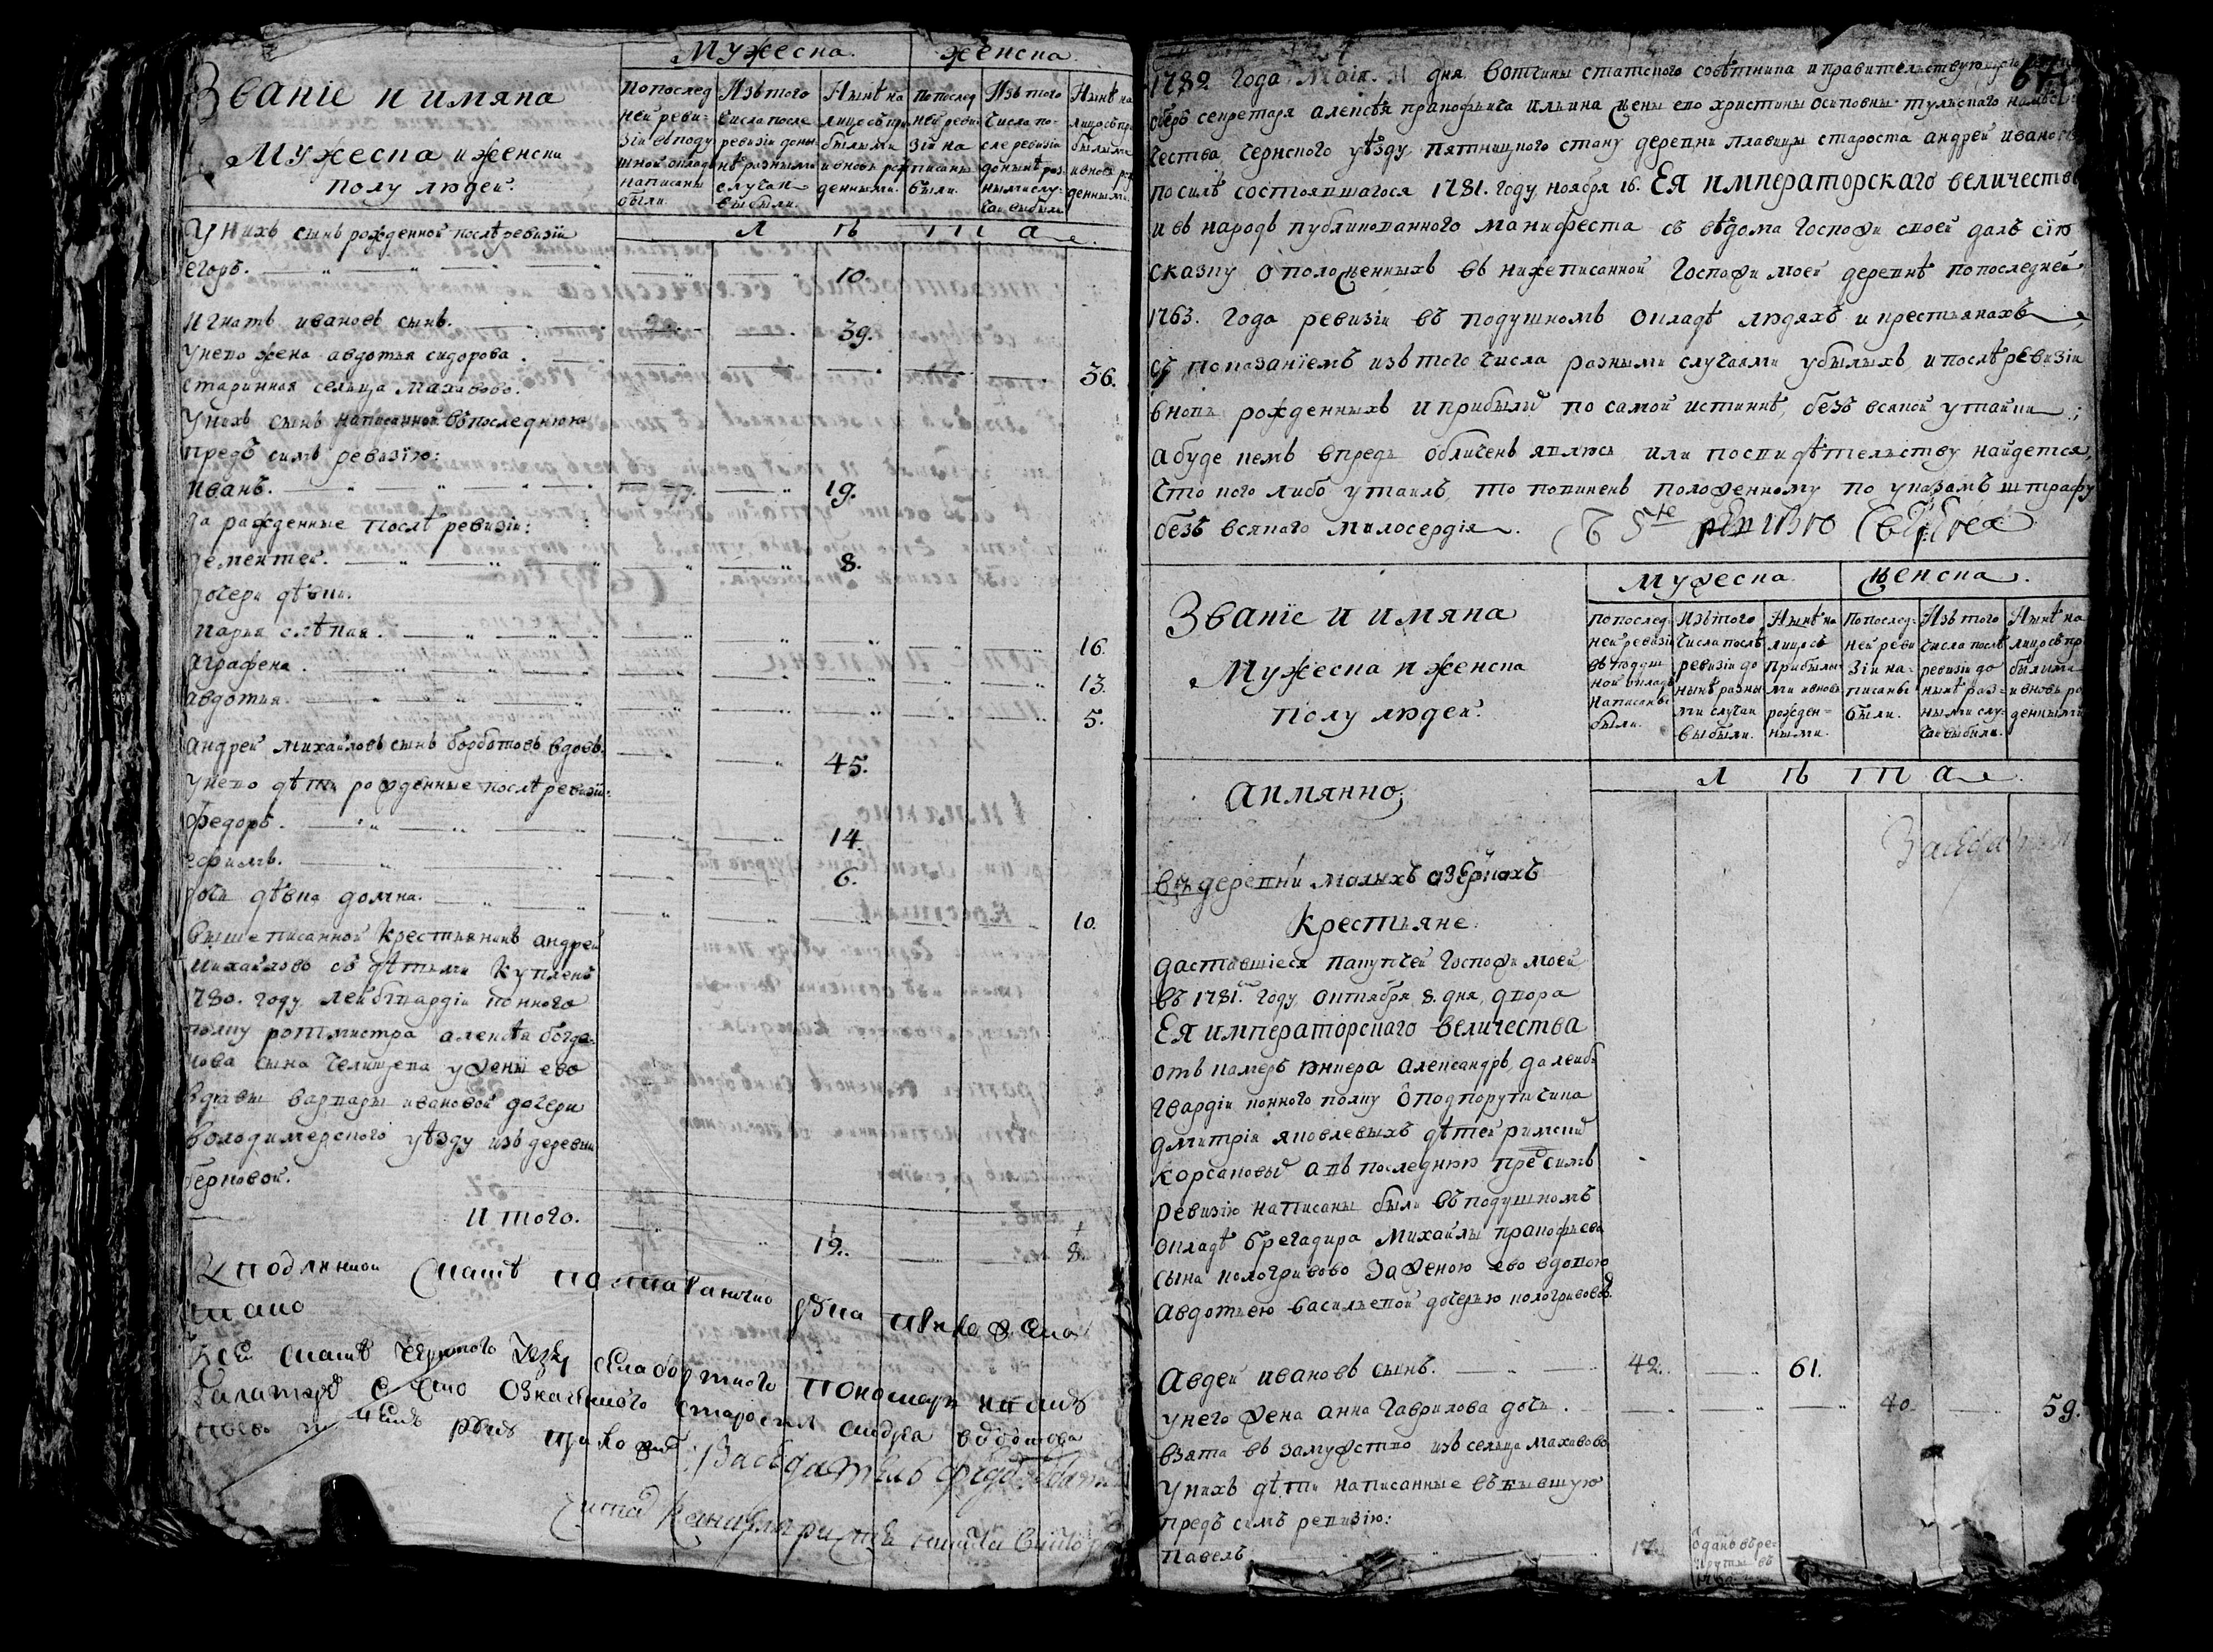 Званіе и имяна
Мужеска и женска
полу людей.
Мужеска.
Женска
Попослед
ней реви-
зіи въ поду
шной оклад
написаны
были.
Изъ того
числа после
ревизіи доны-
нѣ разными
случаи
выбыли.
Нынѣ на
лицо съ при
былыми
и вновь рож
денными.
Попослед
ней реви
зіи на
писаны
были.
Изъ того
числа по-
сле ревизіи
донынѣ раз
ными слу-
чаи выбыли
Нынѣ на
лицо съ при
былыми
и вновь ро
денными.
Л ѣ т а
У нихъ сынъ рожденной послѣ ревизіи
егоръ. 10.
Игнатъ ивановъ сынъ. 39.
У него жена авдотья сидорова. 36.
старинная сельца махавово.
У нихъ сынъ написанной въ последнюю
предъ симъ ревизію:
иванъ. 19.
да рожденные послѣ ревизіи:
дементей. 8.
дочери дѣвки.
марья слѣпая. 16.
аграфена. 13.
авдотья. 5.
андрей михайловъ сынъ борботовъ вдовъ. 45.
У него дѣти рожденные послѣ ревизіи:
федоръ. 14.
ефимъ. 6.
дочь дѣвка домна. 10.
Вышеписанной крестьянинъ андрей
михайловъ съ дѣтьми купленъ
1780. году лейбгвардіи конного
полку ротмистра алексѣя богда-
нова сына челищева у жены ево
вдовы варвары ивановой дочери
володимерского уѣзду изъ деревни
берковой.
Итого. 19. 8.
У подлинной скаскѣ
писано
К сей скаскѣ чернского уезду села бортного пономарь
означенного старосты андрея
руку приложилъ
Заседатель федоръ
читалъ канцеляристъ никита
1782 года маія. дня. вотчины статского совѣтника и правительствующаго
оберъ секретаря алексѣя пракофьича ильина жены ево христины осиповны тульскаго намѣс
чества, чернского уѣзду, пятницкого стану деревни плавицы староста андрей ивановъ
по силѣ состоявшагося 1781. году, ноября 16. Ея императорскаго величества
и въ народъ публикованного манифеста съ вѣдома госпожи своей далъ сію
сказку о положенныхъ въ нижеписанной госпожи моей деревнѣ по последней
1763. года ревизіи въ подушномъ окладѣ людяхъ и крестьянахъ,
съ показаніемъ изъ того числа разными случаями убылыхъ, и послѣ ревизіи
вновь рожденныхъ и прибылыхъ по самой истиннѣ, безъ всякой утайки;
а буде чемъ впредь обличенъ явлюсь, или по свидѣтельству найдется,
что кого либо утаилъ, то повиненъ положенному по указамъ штрафу
безъ всякаго милосердія.
Званіе и имяна
Мужеска и женска
полу людей.
Мужеска.
Женска.
Попослед-
ней ревизіи
въ подуш
ной окладъ
написаны
были.
Изъ того
числа послѣ
ревизіи до
нынѣ разны
ми случаи
выбыли.
Нынѣ на
лицо съ
прибылы
ми и вновь
рожден-
ными.
Попослед-
ней реви
зіи на-
писаны
были.
Изъ того
числа послѣ
ревизіи до
нынѣ раз-
ными слу-
чаи выбыли.
Нынѣ на
лицо съ при
былыми
и вновь ро
денными
Л ѣ т а
А имянно;
въ деревни малыхъ озеркахъ
Крестьяне.
доставшіеся покупкей госпожи моей
въ 1781. году октября 8. дня, двора
Ея императорскаго величества
отъ камеръ юнкера александръ, да лейбъ
гвардіи конного полку подпорутчика
дмитрія яковлевыхъ дѣтей римскихъ
корсаковыхъ а въ последнюю предъ симъ
ревизію написаны были въ подушномъ
окладѣ брегадира михайлы пракофьева
сына кологривово за женою ево вдовою
авдотьею васильевой дочерью кологривовой.
Авдей ивановъ сынъ. 42. 61.
У него жена анна гаврилова дочь. 40. 59.
взята въ замужство изъ сельца махавово
У нихъ дѣти написанные въ бывшую
предъ симъ ревизію:
павелъ 17. отданъ въ ре-
круты въ